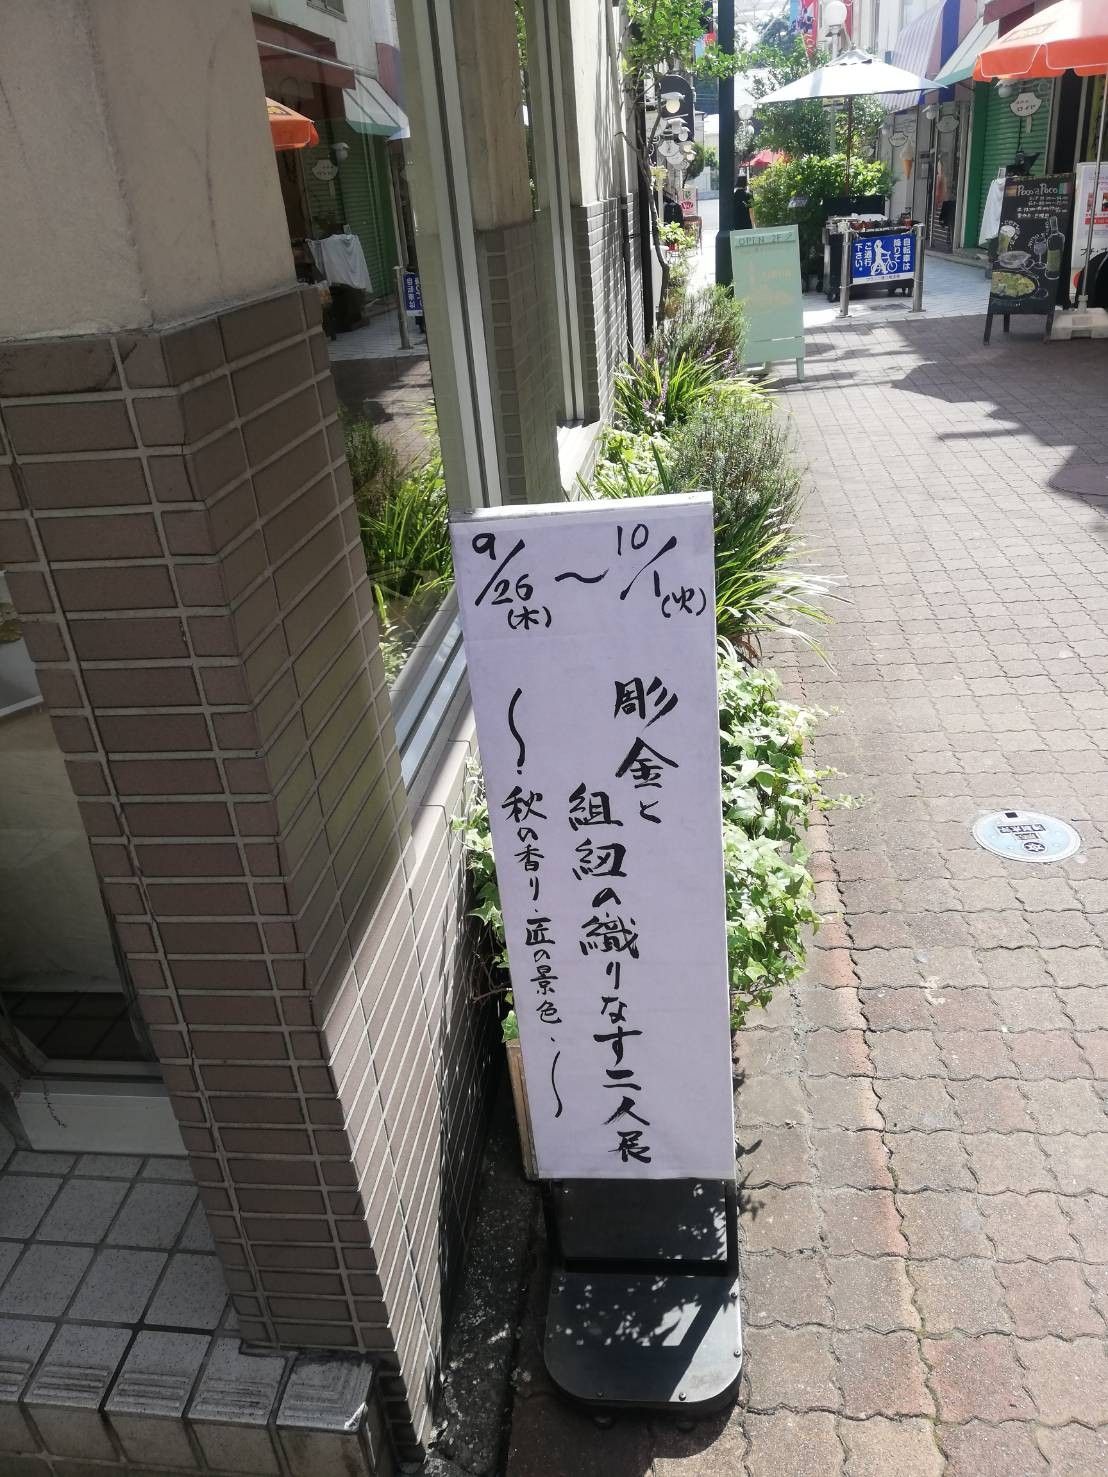 9/26(木)～10/1(火)
彫金と
組紐の織りなす二人展
～秋の香り・匠の景色・～
OPEN 2F
自転車は
降りて
ご通行
下さい。
Poco a Poco